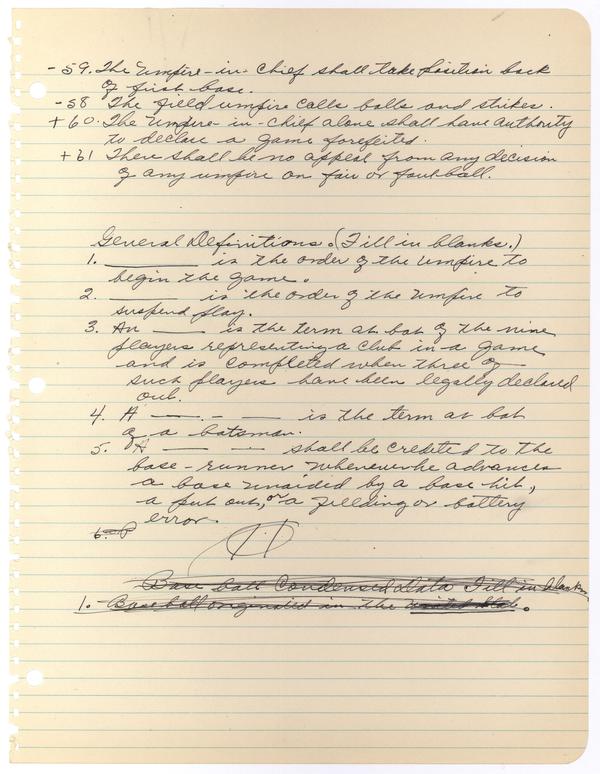 - 59. The Umpire-in-Chief shall take position back
of first base.
- 58 The field umpire calls balls and strikes.
+ 60. The Umpire-in-chief alone shall have authority
to declare a game forefeited.
+ 61 There shall be no appeal from any decision
of any umpire on fair or foul ball.
General Definitions. (Fill in blanks.)
1. ______ is the order of the Umpire to
begin the game.
2. ______ is the order of the Umpire to
suspend play.
3. An ____ is the term at bat of the nine
players representing a club in a game
and is completed when three of
such players have been legally declared
out.
4. A ___ - ___ - ___ is the term at bat
of a batsman.
5. A ____ ____ shall be credited to the
base-runner whenever he advances
a base unaided by a base hit,
a put out, or a fielding or battery
error.
6.
Base ball Condensed Data Fill in blanks
1. - Baseball originated in the United States.